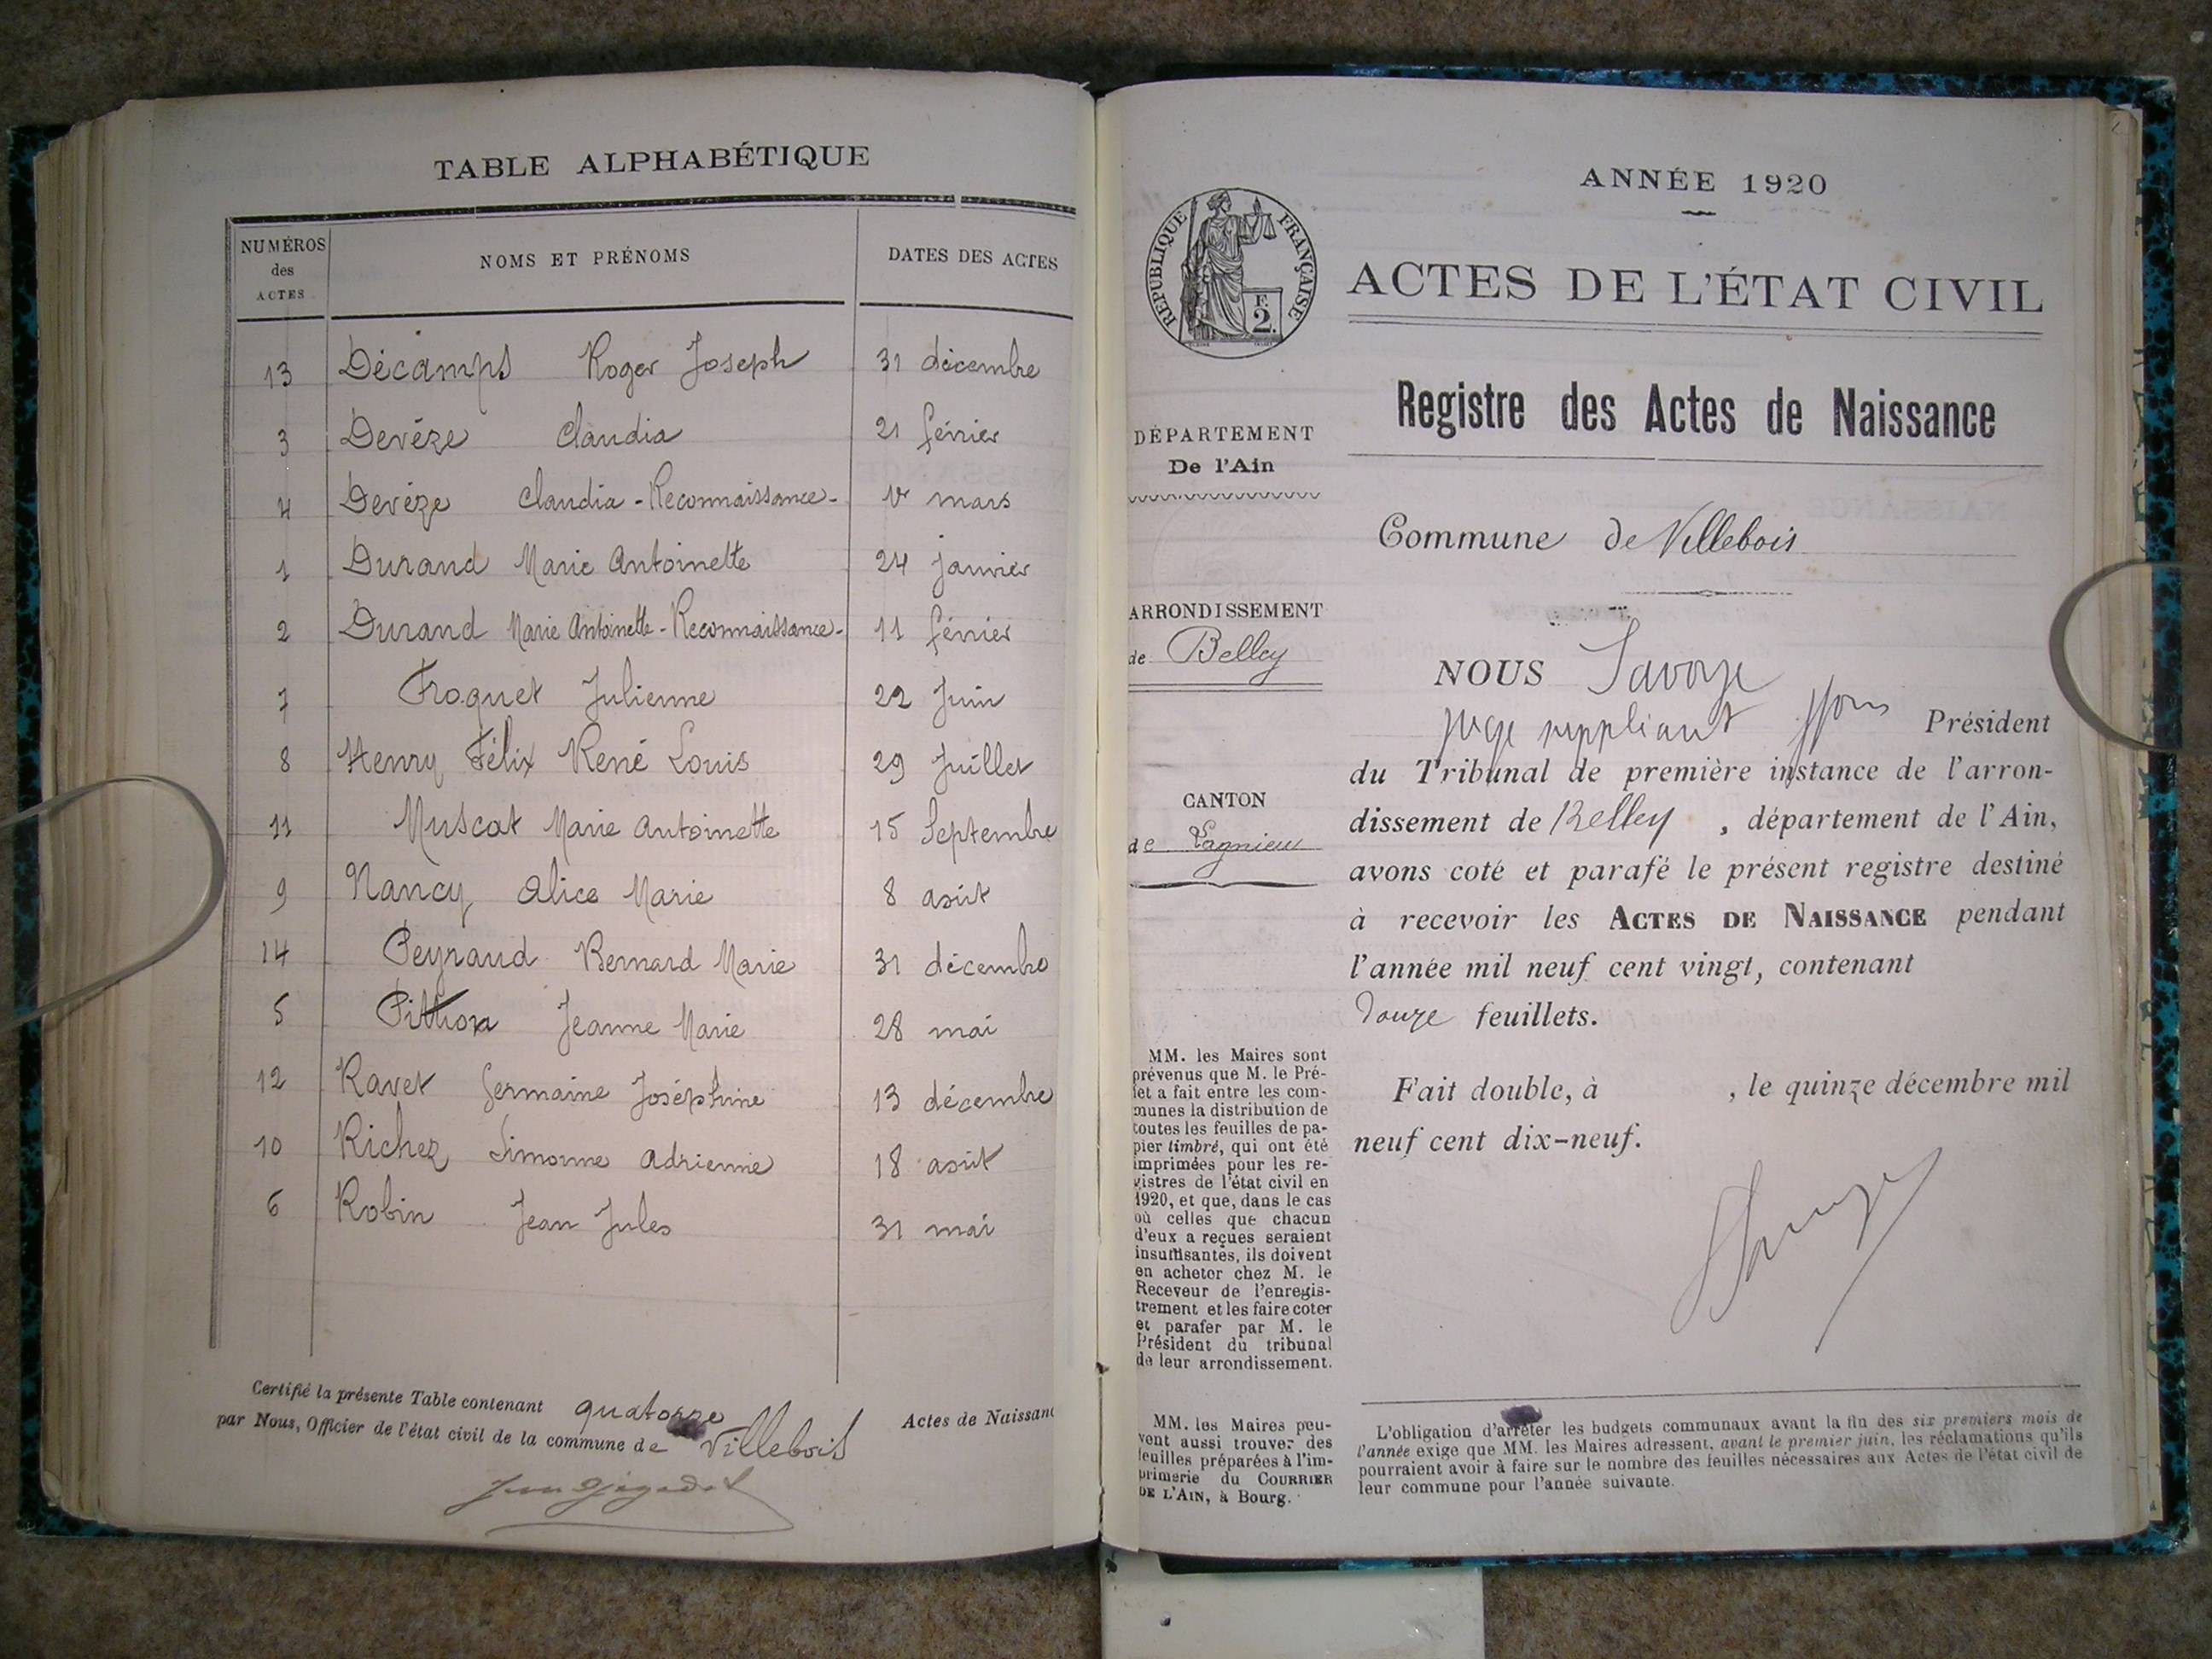 TABLE ALPHABÉTIQUE
NUMÉROS des ACTES NOMS ET PRÉNOMS DATES DES ACTES
13 Décamps Roger Joseph 31 décembre
3 Devéze Claudia 21 février
4 Devéze Claudia - Reconnaissance - 1er mars
1 Durand Marie Antoinette 24 janvier
2 Durand Marie Antoinette - Reconnaissance - 11 février
7 Froquet Julienne 22 Juin
8 Henry Félix René Louis 29 Juillet
11 Muscat Marie Antoinette 15 Septembre
9 Nancy Alice Marie 8 août
14 Peyraud Bernard Marie 31 décembre
5 Pithion Jeanne Marie 28 mai
12 Ravet Germaine Joséphine 13 décembre
10 Richez Simonne Adrienne 18 août
6 Robin Jean Jules 31 mai
Certifié la présente Table contenant quatorze Actes de Naissanc
par Nous, Officier de l'état civil de la commune de Villebois
ANNÉE 1920
RÉPUBLIQUE FRANÇAISE
F.
2.
ACTES DE L'ÉTAT CIVIL
Registre des Actes de Naissance
DÉPARTEMENT
De l'Ain
Commune de Villebois
ARRONDISSEMENT
de Belley
CANTON
de Lagnieu
NOUS Savoye
juge suppléant Président
du Tribunal de première instance de l'arron-
dissement de Belley , département de l'Ain,
avons coté et parafé le présent registre destiné
à recevoir les ACTES DE NAISSANCE pendant
l'année mil neuf cent vingt, contenant
douze feuillets.
Fait double, à , le quinze décembre mil
neuf cent dix-neuf.
MM. les Maires sont
prévenus que M. le Pré-
fet a fait entre les com-
munes la distribution de
toutes les feuilles de pa-
pier timbré, qui ont été
imprimées pour les re-
gistres de l'état civil en
1920, et que, dans le cas
où celles que chacun
d'eux a reçues seraient
insuffisantes, ils doivent
en acheter chez M. le
Receveur de l'enregis-
trement et les faire coter
et parafer par M. le
Président du tribunal
de leur arrondissement.
MM. les Maires peu-
vent aussi trouver des
feuilles préparées à l'im-
primerie du COURRIER
DE L'AIN, à Bourg.
L'obligation d'arrêter les budgets communaux avant la fin des six premiers mois de
l'année exige que MM. les Maires adressent, avant le premier juin, les réclamations qu'ils
pourraient avoir à faire sur le nombre des feuilles nécessaires aux Actes de l'état civil de
leur commune pour l'année suivante.